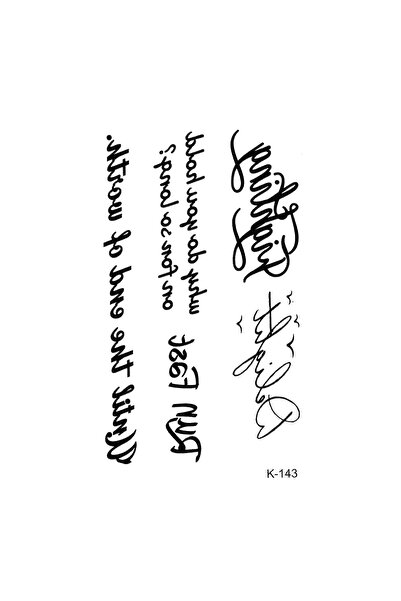 Until the end of worth.
why do you hold
on for so long?
Run Fast
Fighting
Delight
K-143